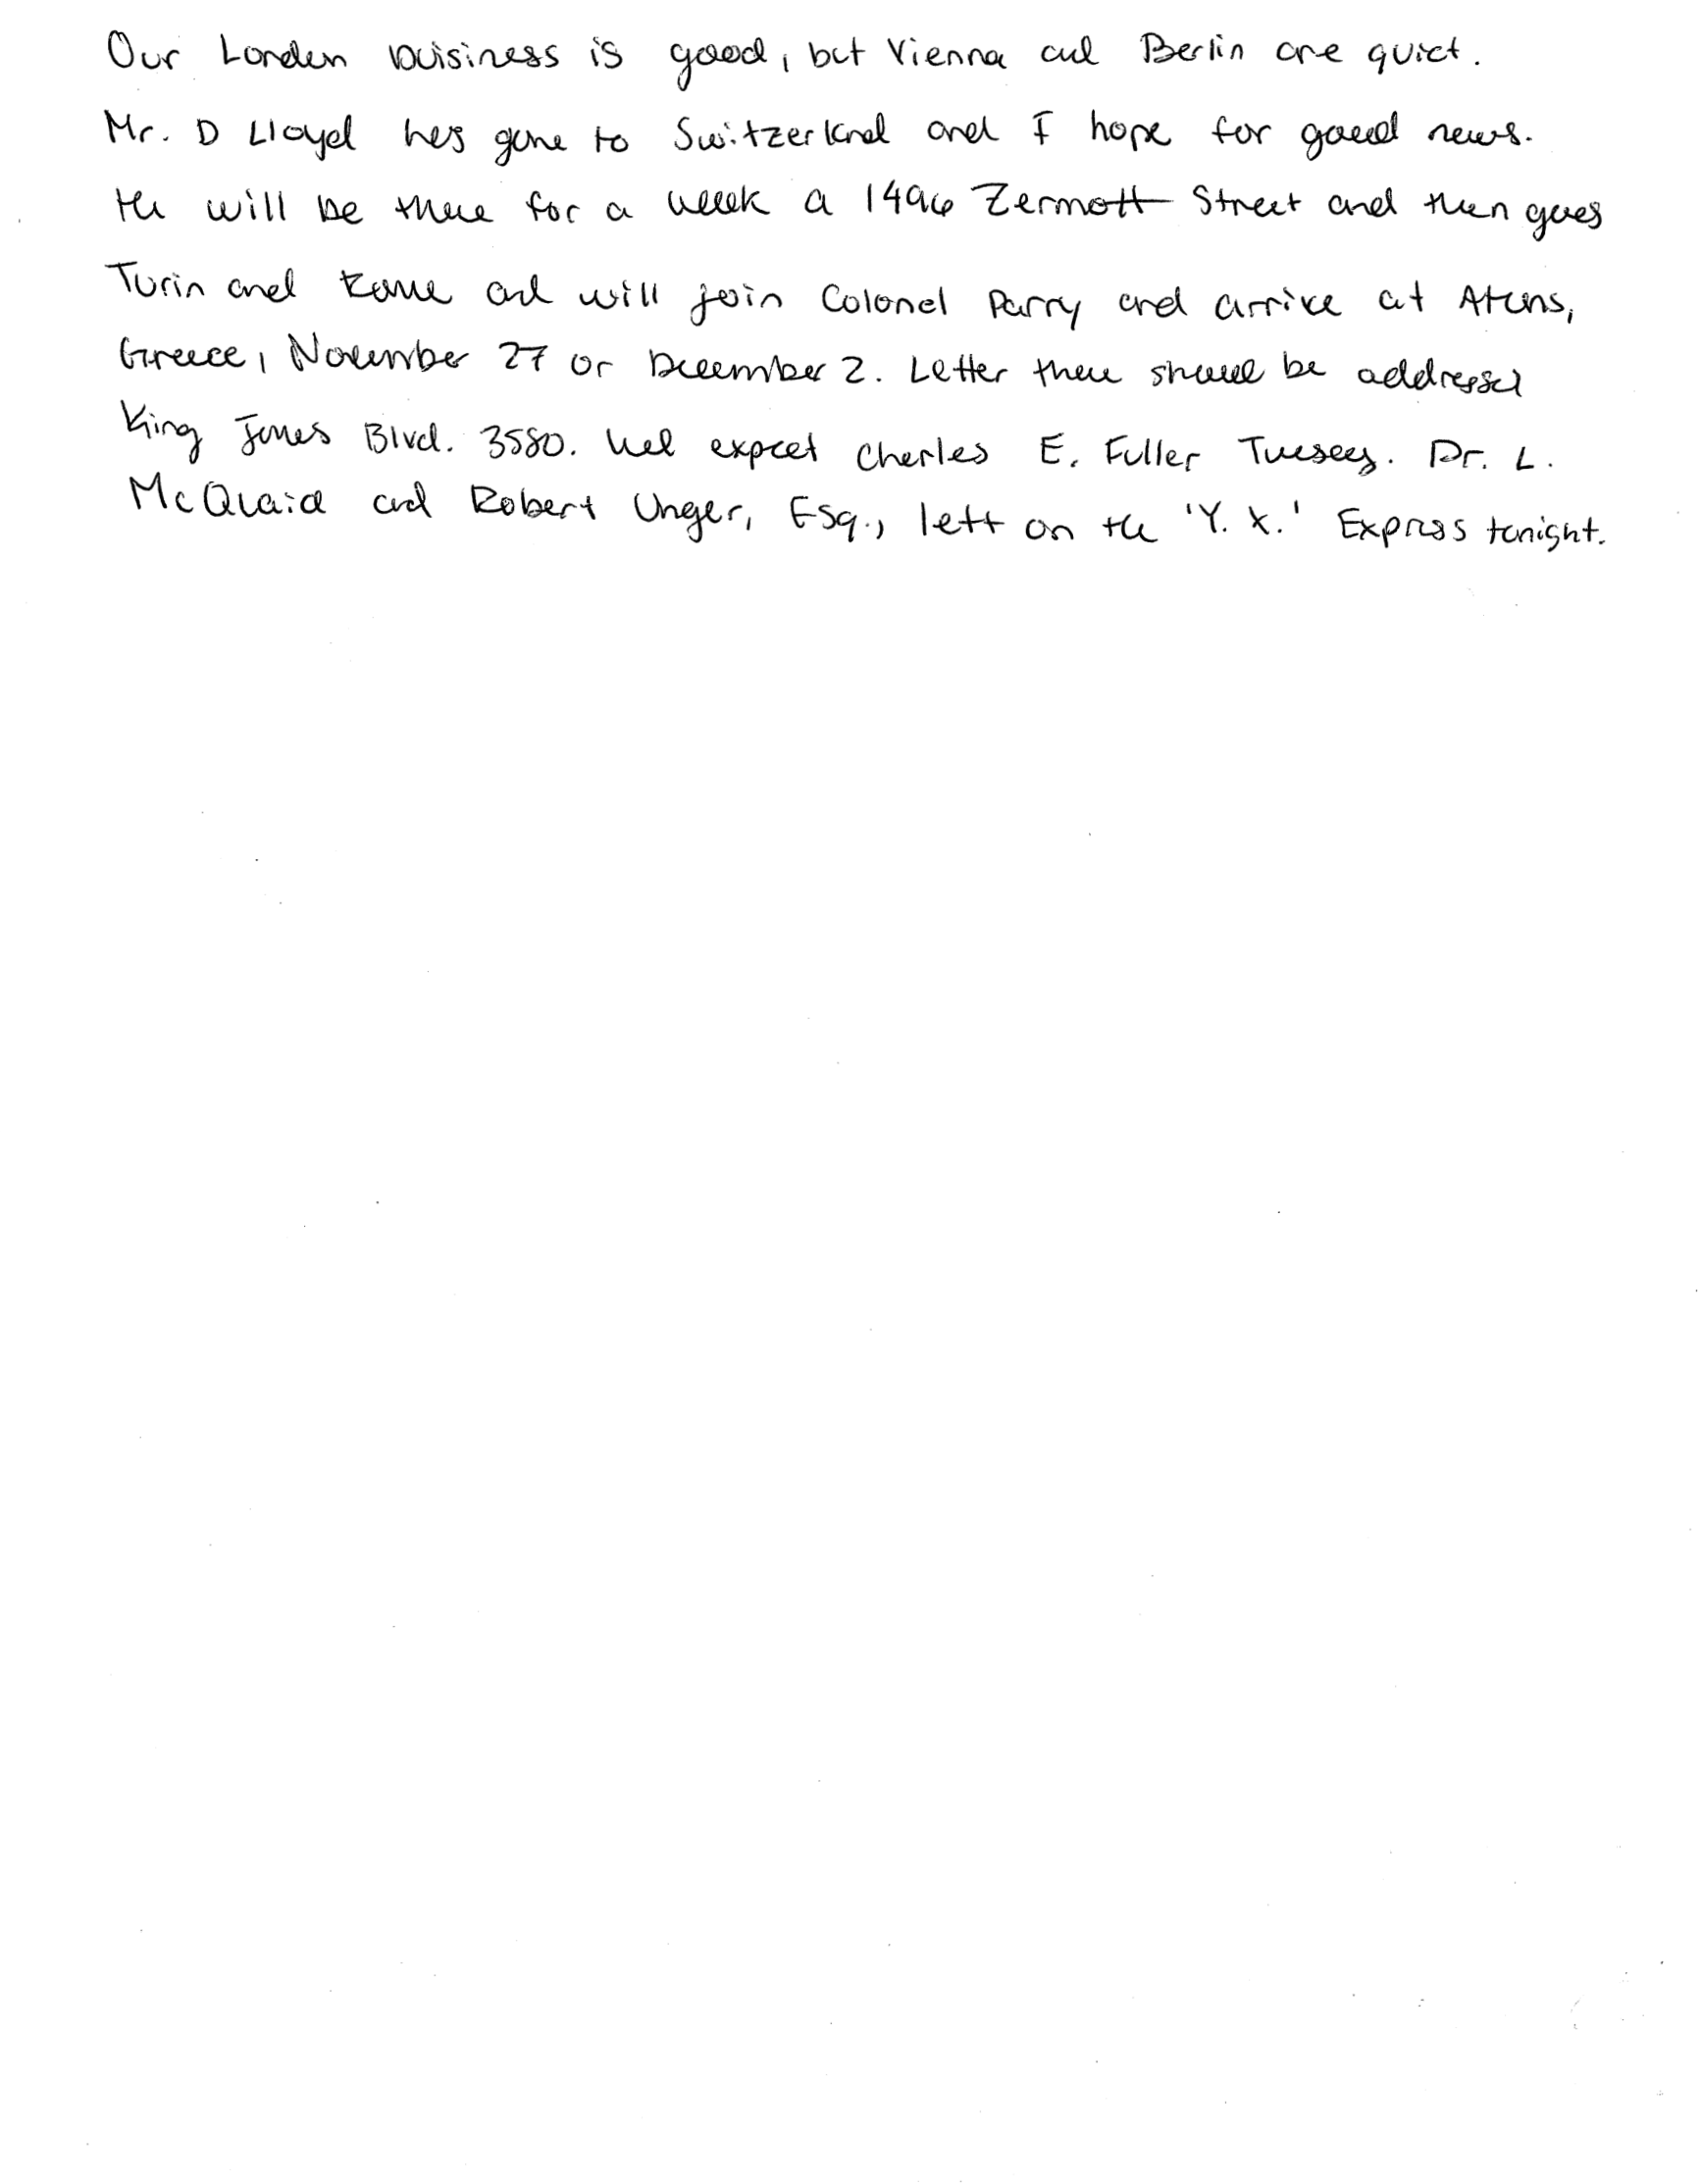 Our London buisiness is good, but Vienna and Berlin are quiet.
Mr. D Lloyd has gone to Switzerland and I hope for good news.
He will be there for a week a 1496 Zermott Street and then goes
Turin and Rome and will join Colonel Parry and arrive at Athens,
Greece, November 27 or December 2. Letter there should be addressed
King James Blvd. 3580. expect Charles E. Fuller Tuesday. Dr. L.
McQuaid and Robert Unger, Esq., left on the 'Y. X.' Express tonight.